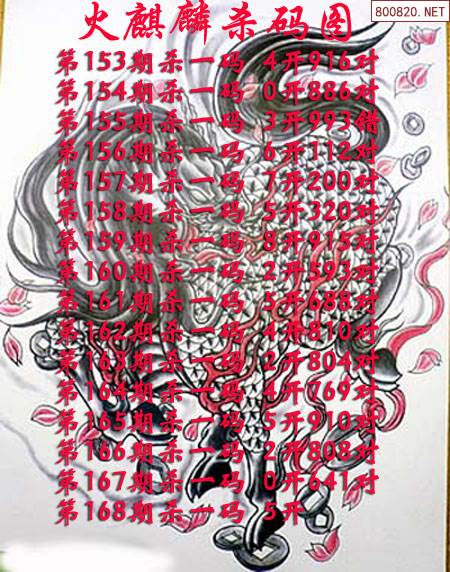 800820.NET
火麒麟杀码图
第153期杀一码 4开916对
第154期杀一码 0开886对
第155期杀一码 3开993错
第156期杀一码 6开112对
第157期杀一码 7开200对
第158期杀一码 5开320对
第159期杀一码 8开915对
第160期杀一码 2开593对
第161期杀一码 5开688对
第162期杀一码 4开810对
第163期杀一码 2开804对
第164期杀一码 4开769对
第165期杀一码 5开910对
第166期杀一码 2开808对
第167期杀一码 0开641对
第168期杀一码 5开